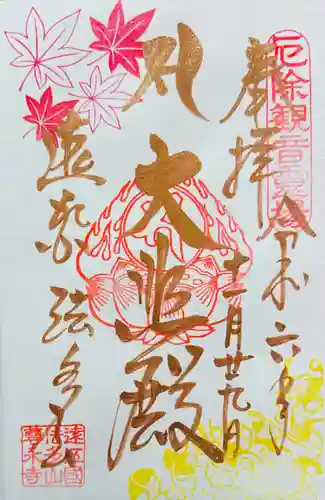 厄除観音霊場
奉拝
令和六年
十一月廿九日
大悲殿
遠州 法多山
遠江國
法多山
尊永寺